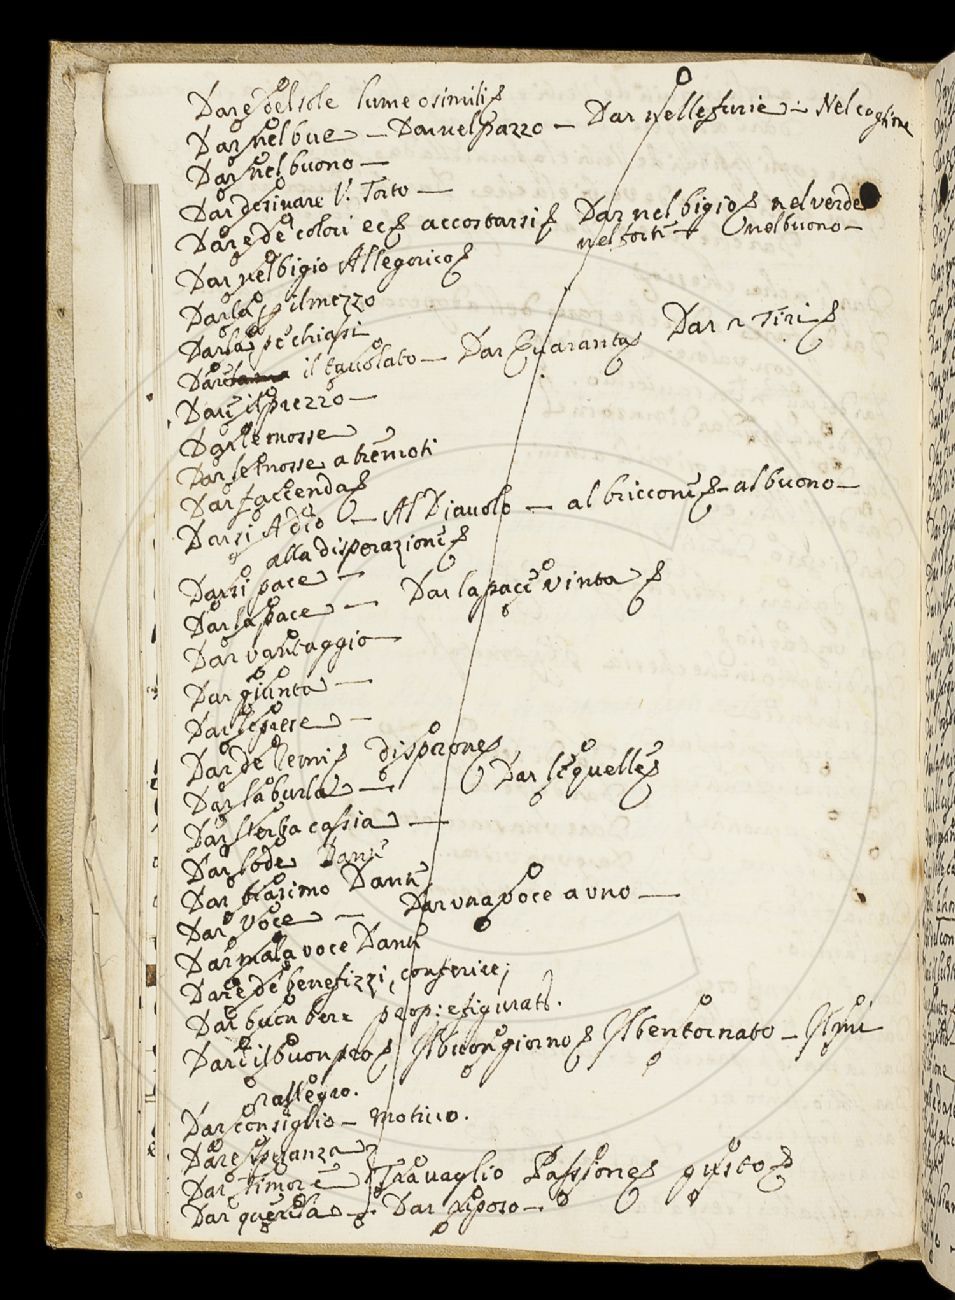 Dare del sole lume o simili
Dar nel bue — Dar nel pazzo — Dar nelle furie — Nel coglione
Dar nel buono —
Dar desinare V. Torto —
Dare de colori ec accostarsi Dar nel bigio nel verde
nel forte — O nel buono —
Dar nel bigio Allegorico
Darla pel mezzo
Darla pe chiassi
Dar il tavolato — Dar Quaranta Dar 2 Tiri
Dare il prezzo —
Dar le mosse
Dar le mosse a tremoti
Dar faccenda
Darsi A Dio — Al Diavolo — al briccone — al buono —
alla disperazione
Darsi pace —
Dar la pace — Dar la pace vinta
Dar vantaggio —
Dar giunta —
Dar le prese —
Dar de Termi dispone
Dar la burla — Dar le quelle
Dar l'erba cassia —
Dar lode Dante
Dar biasimo Dante
Dar voce — Dar una voce a uno —
Dar mala voce Dante
Dare de benefizzi, conferire;
Dar buon bere prop: e figurat.
Dare il buon pro Il buon giorno Il ben tornato — Il mi
rallegro.
Dar consiglio — motivo.
Dare speranza
Dar timore Travaglio Passione gusto
Dar querela — Dar riposo —